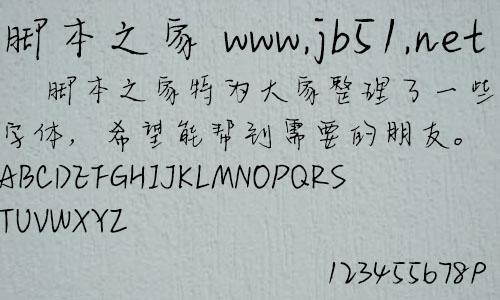 脚本之家 www.jb51.net
脚本之家特为大家整理了一些
字体，希望能帮到需要的朋友。
ABCDEFGHIJKLMNOPQRS
TUVWXYZ
123455678P